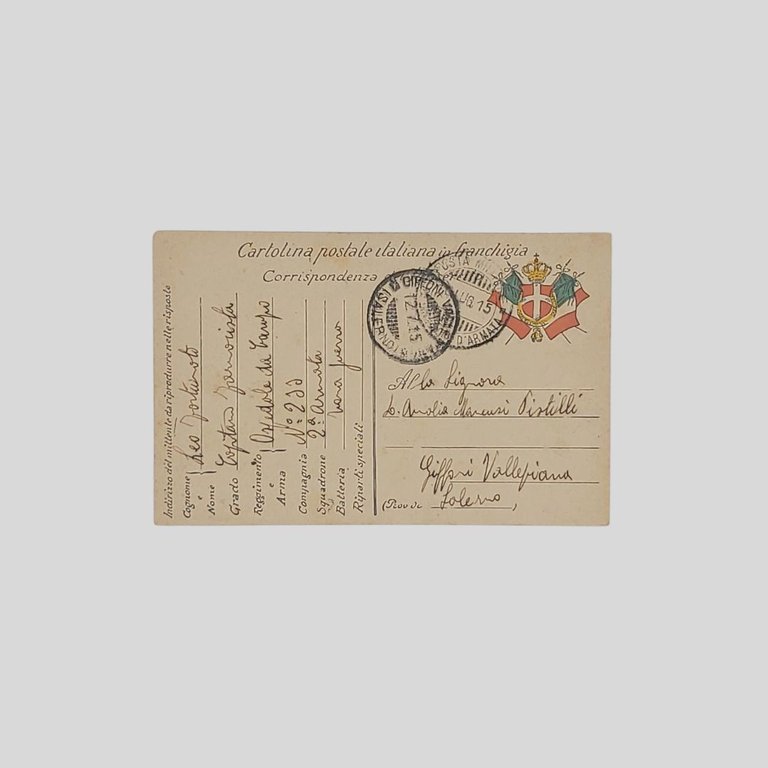 Cartolina postale italiana in franchigia
Corrispondenza
Indirizzo del mittente da riprodurre nelle risposte
Cognome
e
Nome
Leo Fortunato
Grado Capitano Farmacista
Reggimento
e
Arma
Ospedale da Campo
Compagnia N° 233
Squadrone 2ª Armata
Batteria Zona guerra
Riparti speciali
GIFFONI VALLE
12.7.15
(SALERNO)
POSTA
15
D'ARMATA
Alla Signora
Marcusi Pistelli
Giffoni Vallepiana
(Prov. di Salerno)